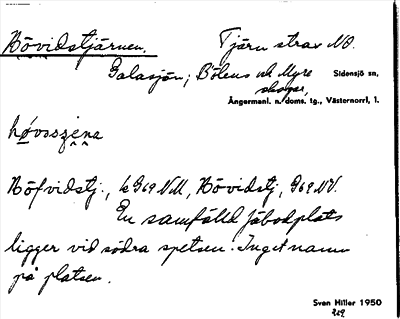 Bövidstjärnen. Tjärn strax NO.
Galasjön; Bölens och Myre
skogar,
Sidensjö sn,
Ångermanl. n. doms. tg., Västernorrl. l.
Böfvidstj., k G69 NV, Bövidstj, G69 NV.
En samfälld fäbodplats
ligger vid södra spetsen. Inget namn
på platsen.
Sven Hiller 1950